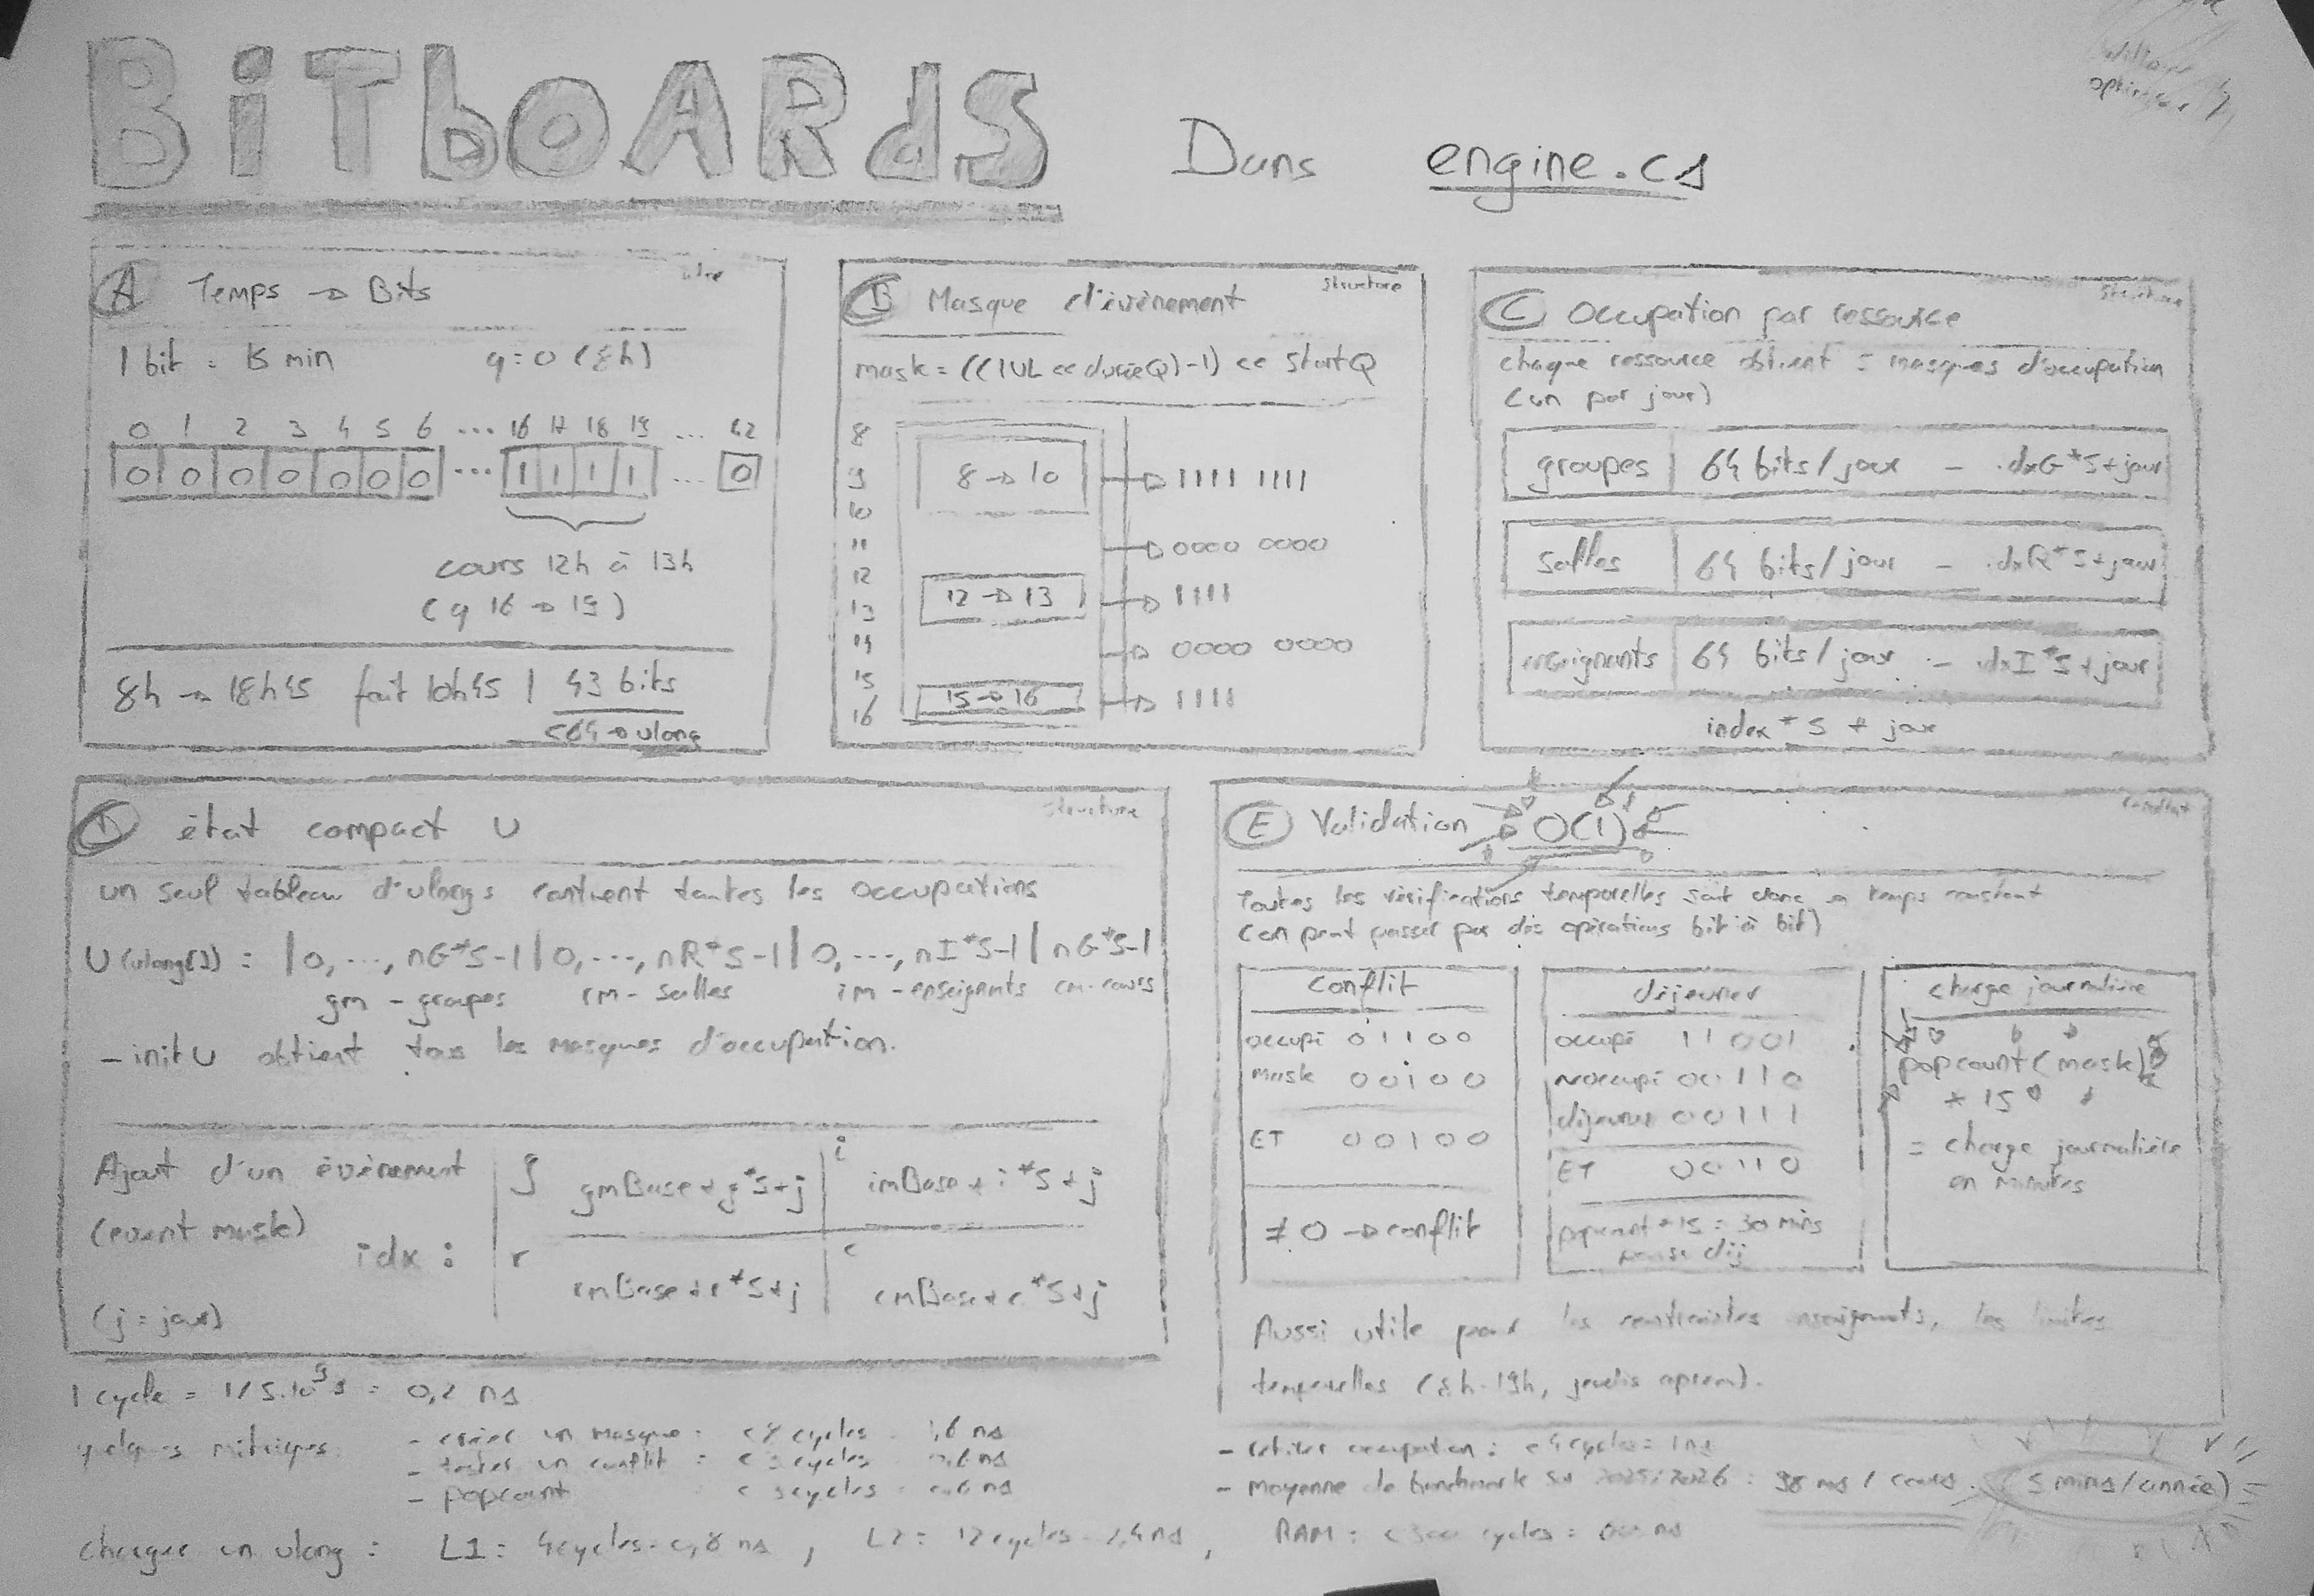 BiTboARdS Dans engine.cs
A Temps → Bits
1 bit = 15 min q=0 (8h)
0 1 2 3 4 5 6 ... 16 17 18 19 ... 42
0 0 0 0 0 0 0 ... 1 1 1 1 ... 0
cours 12h à 13h
(q 16 → 19)
8h → 18h45 fait 10h45 | 43 bits
<64 → ulong
B Masque d'évènement
structure
mask = ((1UL << duréeQ)-1) << StartQ
8
9
10
11
12
13
14
15
16
8 → 10 → 1111 1111
→ 0000 0000
12 → 13 → 1111
→ 0000 0000
15 → 16 → 1111
C Occupation par ressource
structure
chaque ressource obtient 5 masques d'occupation
(un par jour)
groupes 64 bits/jour - idxG*5+jour
salles 64 bits/jour - idxR*5+jour
enseignants 64 bits/jour - idxI*5+jour
index * 5 + jour
D état compact U
structure
un seul tableau d'ulongs contient toutes les occupations
U (ulong[]) : | 0, ..., nG*5-1 | 0, ..., nR*5-1 | 0, ..., nI*5-1 | nG*5-1
gm - groupes rm - salles im - enseignants cm - cours
- initU obtient tous les masques d'occupation.
Ajout d'un évènement
(event mask)
idx :
(j = jour)
g gmBase + g*5+j
i imBase + i*5+j
r rmBase + r*5+j
c cmBase + c*5+j
E Validation → O(1)
Toutes les vérifications temporelles sont donc en temps constant
(on peut passer par des opérations bit à bit)
conflit
occupé 01100
mask 00100
ET 00100
≠ 0 → conflit
déjeuner
occupé 11001
Noccupé 00110
déjeuner 00111
ET 00110
popcount * 15 = 30 mins
pause déj
charge journalière
popcount(mask)
* 15
= charge journalière
en minutes
Aussi utile pour les contraintes enseignants, les limites
temporelles (8h-19h, jeudis aprem).
1 cycle = 1/5.10⁹ s = 0,2 ns
quelques métriques
- créer un masque : <8 cycles = 1,6 ns
- tester un conflit : < 3 cycles = 0,6 ns
- popcount < 3 cycles = 0,6 ns
- retirer occupation : < 4 cycles = 1ns
- Moyenne de benchmark sur 2025/2026 : 38 ms / cours. (5 mins/année)
charger un ulong : L1 = 4 cycles = 0,8 ns, L2 = 12 cycles = 2,4 ns, RAM : <300 cycles =